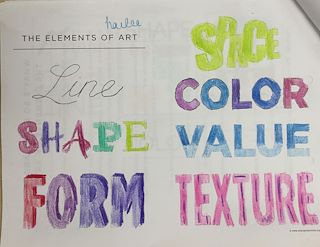 hailee
THE ELEMENTS OF ART
Line
SHAPE
FORM
SPACE
COLOR
VALUE
TEXTURE